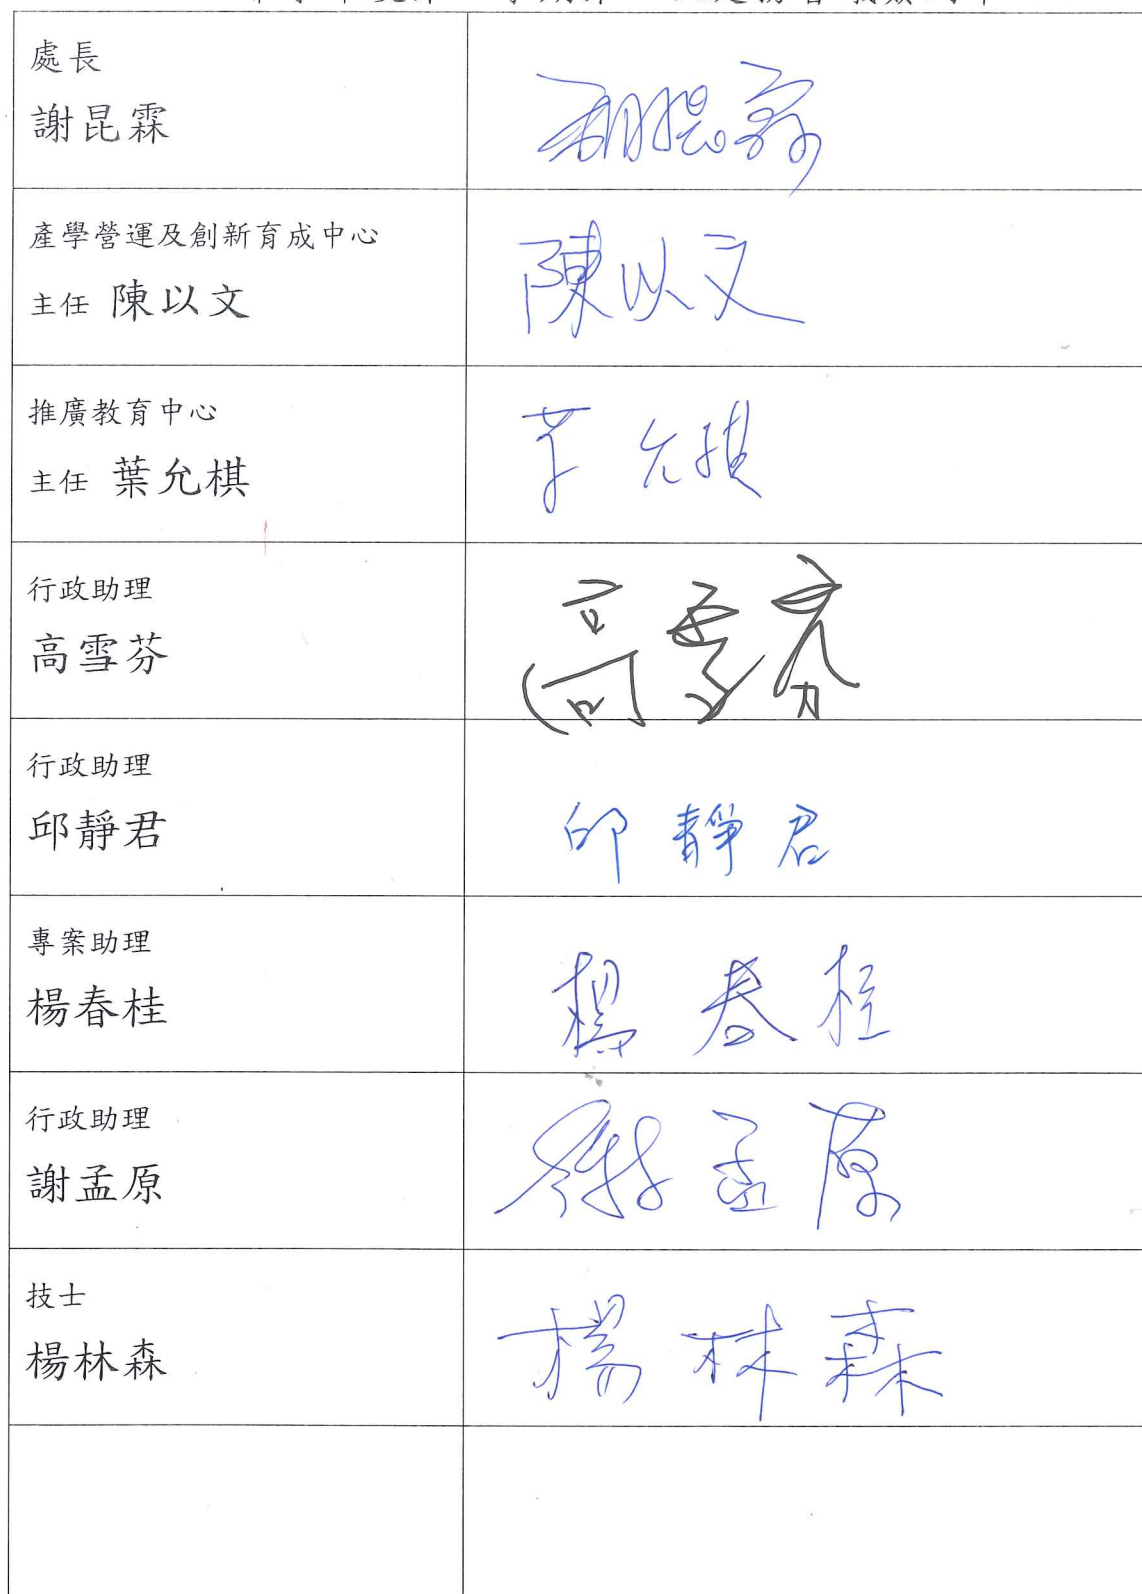 處長
謝昆霖
謝昆霖
產學營運及創新育成中心
主任 陳以文
陳以文
推廣教育中心
主任 葉允棋
葉允棋
行政助理
高雪芬
高雪芬
行政助理
邱靜君
邱靜君
專案助理
楊春桂
楊春桂
行政助理
謝孟原
謝孟原
技士
楊林森
楊林森